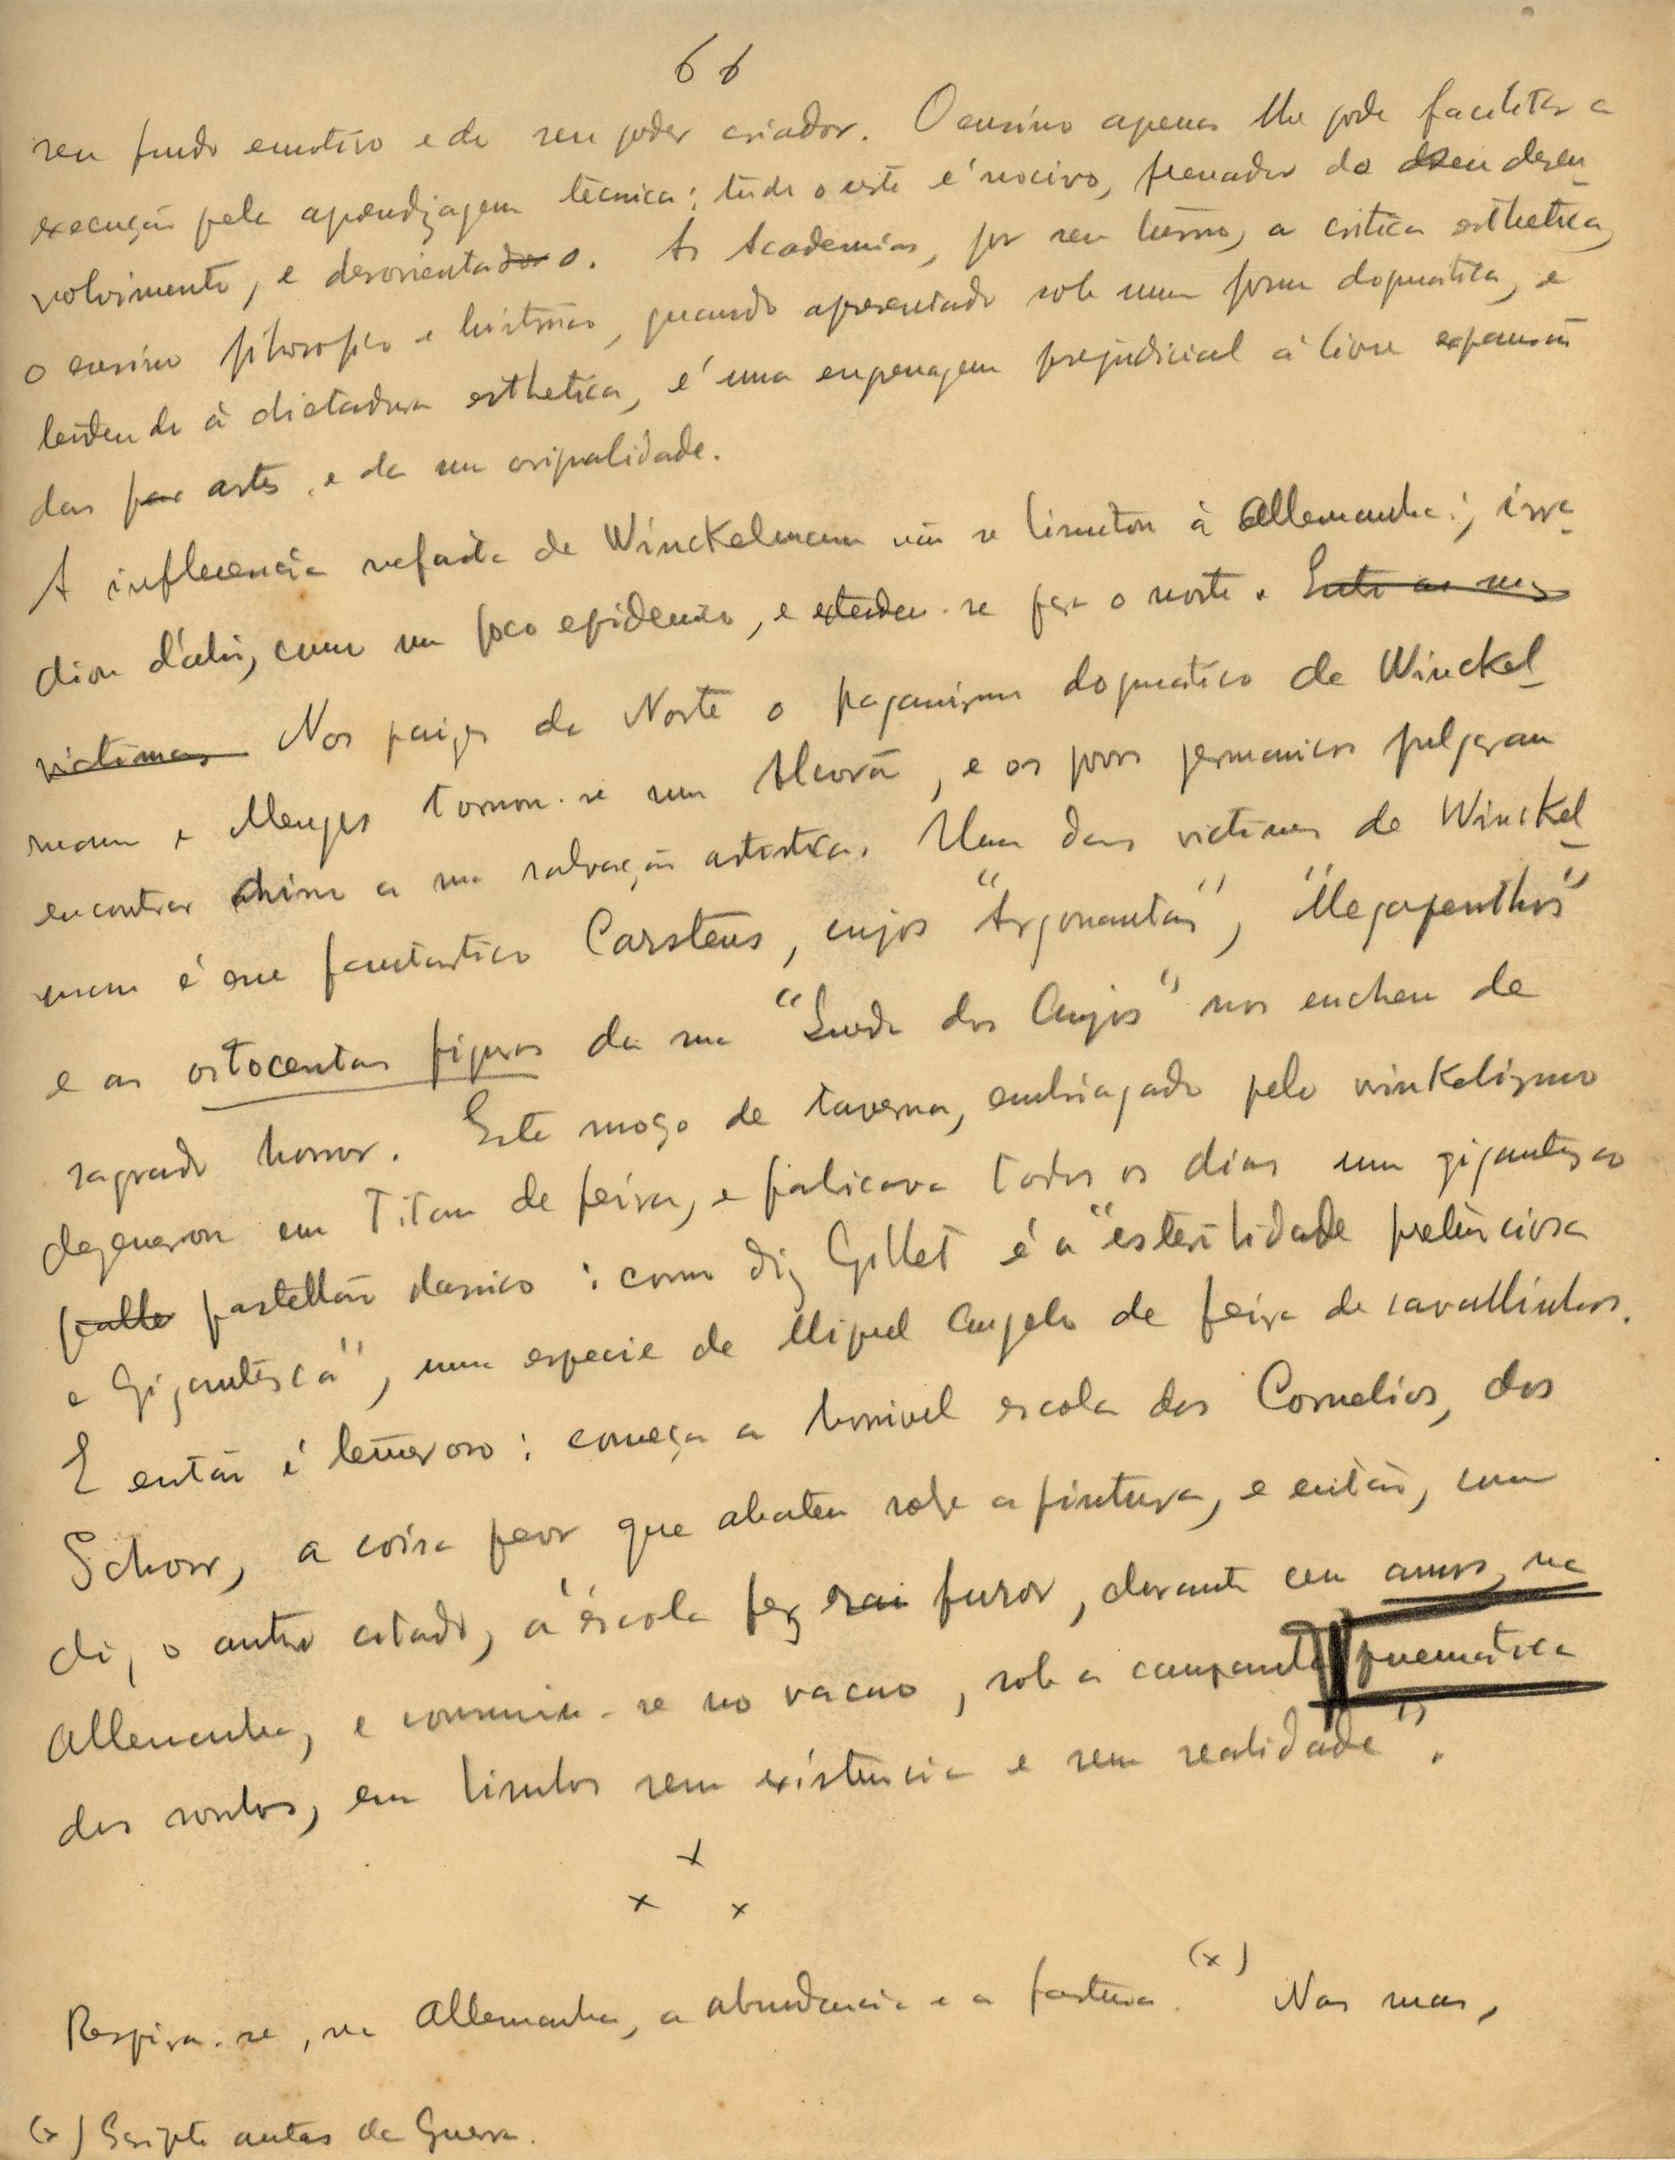 66
seu fundo emotivo e de seu poder criador. O ensino apenas lhe pode facilitar a
execução pela aprendizagem técnica; tudo o resto é nocivo, frenador do seu desen_
volvimento, e desorientador. As Academias, por seu turno, a critica esthetica,
o ensino philosophico e historico, quando apresentado sob uma forma dogmatica, e
tendendo á dictadura esthetica, é uma engrenagem prejudicial á livre expansão
das artes, e da sua originalidade.
A influencia nefasta de Winckelmann não se limitou á Allemanha; irra_
diou d'ali, como um foco epidemico, e extendeu-se para o norte. Entre as suas
victimas Nos paizes do Norte o paganismo dogmatico de Winckel_
mann e Mengs tornou-se um Alcorão, e os povos germanicos julgaram
encontrar a sua salvação artistica. Uma das victimas de Winckel_
mann é esse fantastico Carstens, cujos "Argonautas", "Megapenthes"
e as oitocentas figuras da sua "Queda dos Anjos" nos enchem de
sagrado horror. Este moço de taverna, embriagado pelo winkelismo
degenerou em Titan de feira, e fabricava todos os dias um gigantesco
pastellão classico: como diz Gillet é a "esterilidade pretenciosa
e Gigantesca", uma especie de Miguel Angelo de feira de cavallinhos.
E então é temeroso: começa a horrivel escola dos Cornelios, dos
Schorr, a coisa peor que abateu sobre a pintura, e então, como
diz o autor citado, a "escola fez furor, durante cem annos, na
Allemanha, e consumiu-se no vacuo, sob a campanula pneumatica
dos sonhos, em limbos sem existencia e sem realidade".
x
x x
Respira-se, na Allemanha, a abundancia e a fartura. (x) Nas ruas,
(x) Scripto antes da Guerra.